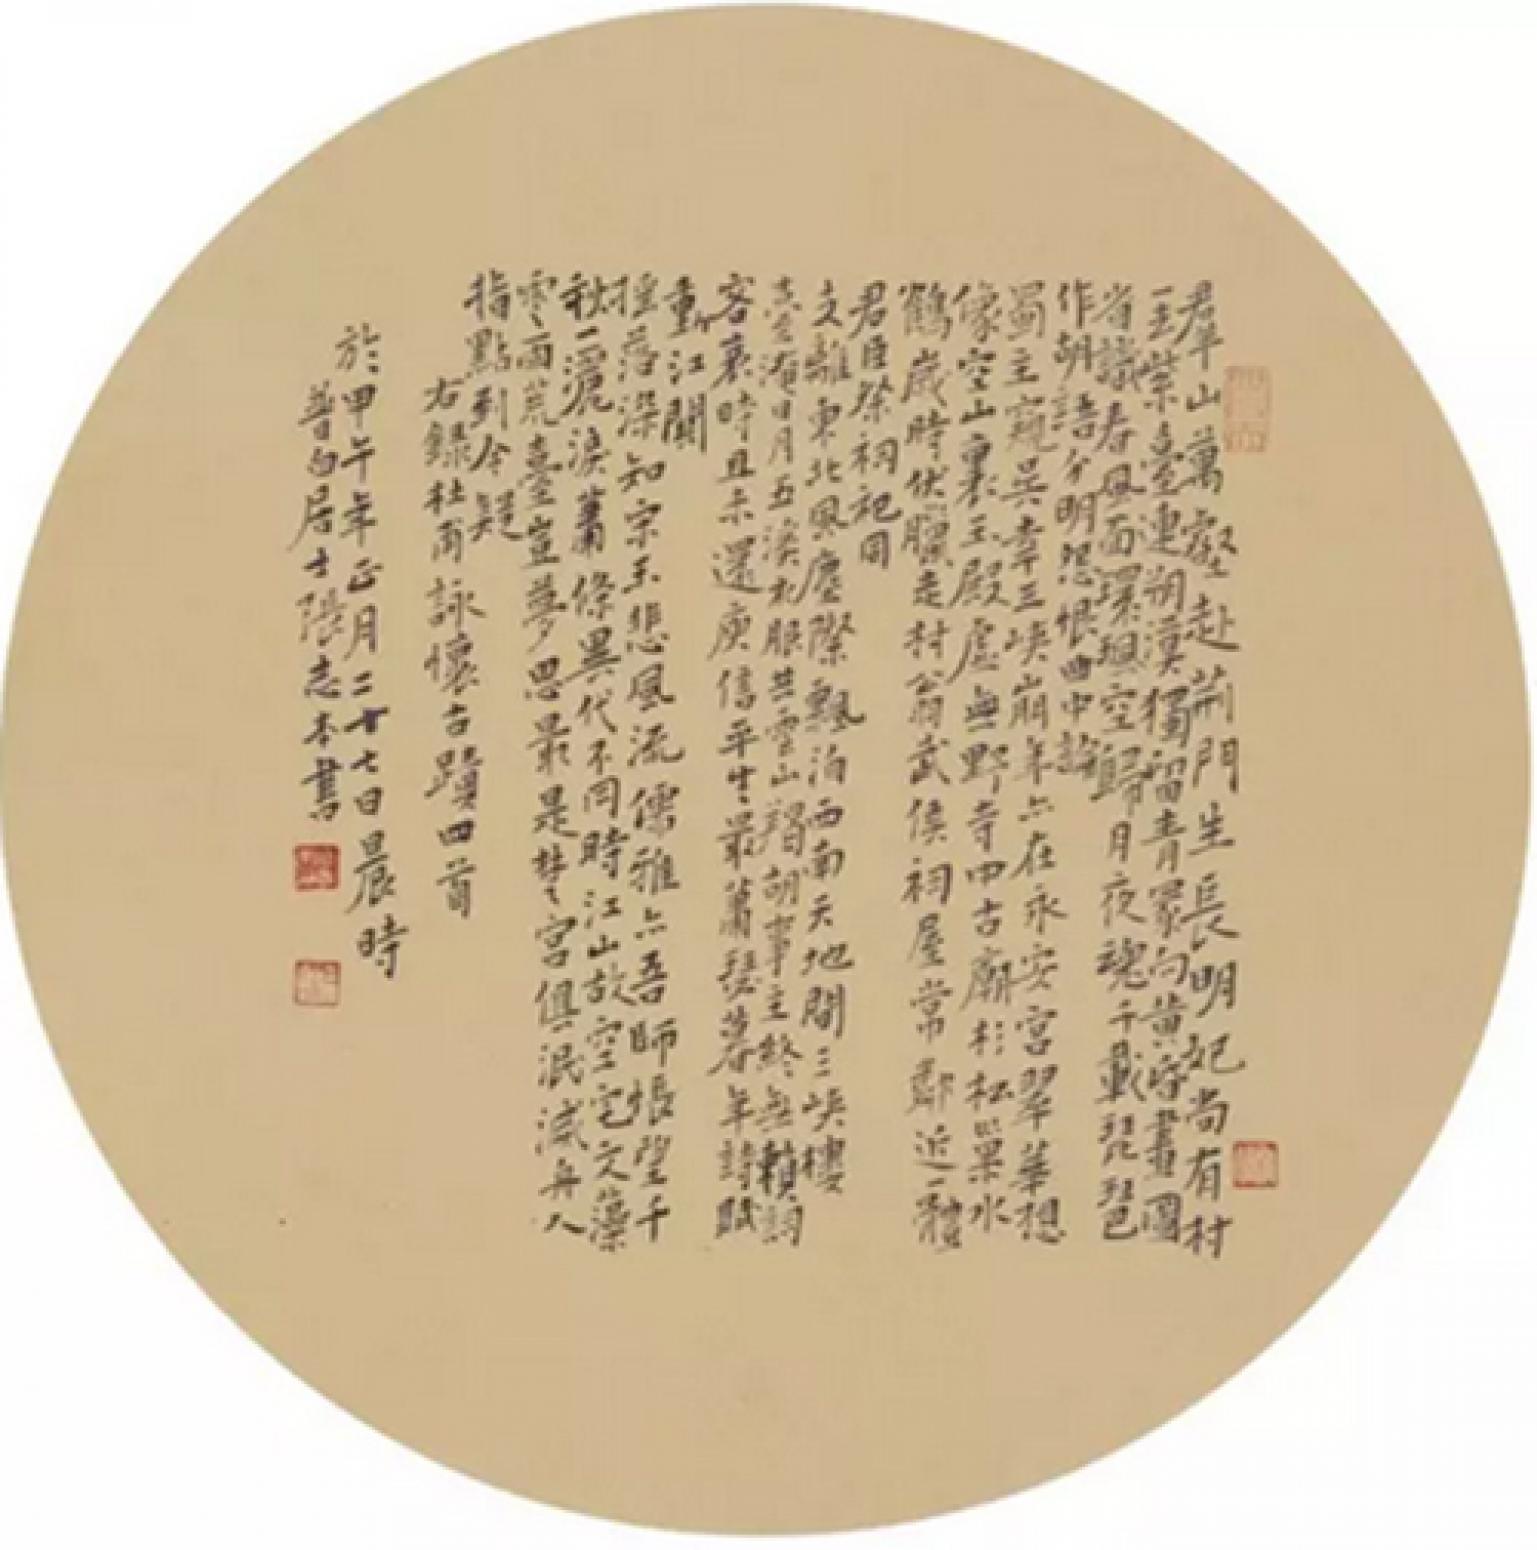 羣山萬壑赴荊門生長明妃尚有村
一去紫臺連朔漠獨留青冢向黃昏畫圖
省識春風面環珮空歸月夜魂千載琵琶
作胡語分明怨恨曲中論
蜀主窺吳幸三峽崩年亦在永安宮翠華想
像空山裏玉殿虛無野寺中古廟杉松巢水
鶴歲時伏臘走村翁武侯祠屋常鄰近一體
君臣祭祠祀同
支離東北風塵際飄泊西南天地間三峽樓
臺淹日月五溪衣服共雲山羯胡事主終無賴詞
客哀時且未還庾信平生最蕭瑟暮年詩賦
動江關
搖落深知宋玉悲風流儒雅亦吾師悵望千
秋一灑淚蕭條異代不同時江山故空宅文藻
雲雨荒臺豈夢思最是楚宮俱泯滅舟人
指點到今疑
右錄杜甫詠懷古蹟四首
於甲午年正月二十七日晨時
普白居士張志本書